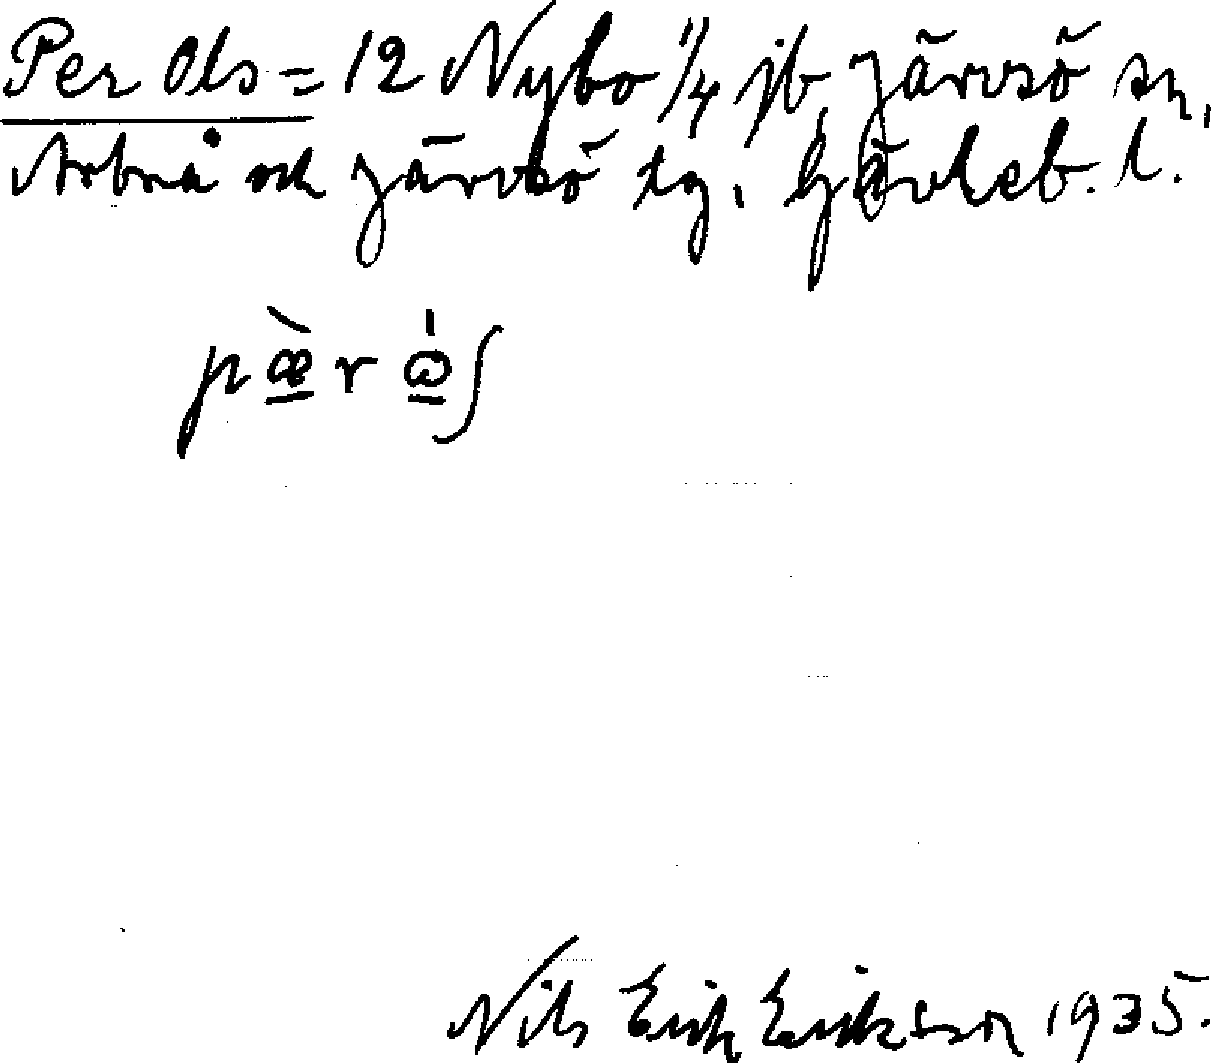 Per Ols = 12 Nybo 1/4 jb, Järvsö sn,
Arbrå och Järvsö tg, Gävleb. l.
pæ̀r ω̇ʃ
Nils Erik Eriksson 1935.